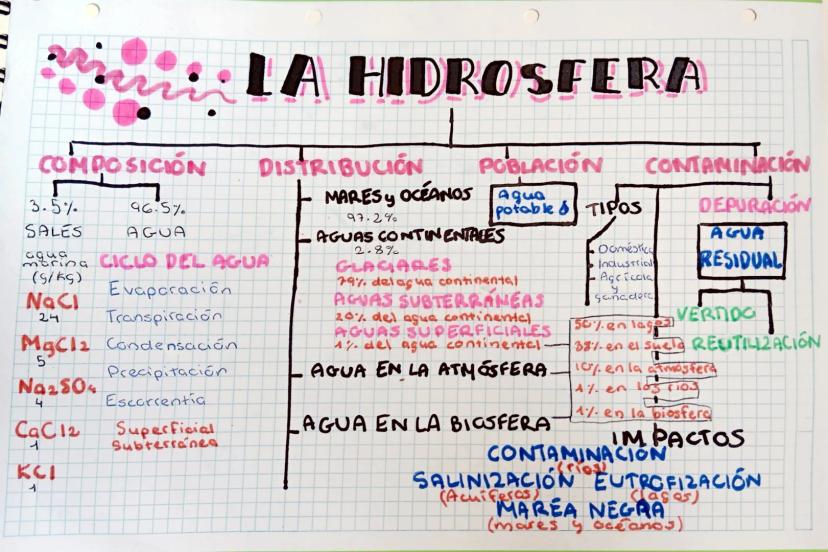 LA HIDROSFERA
COMPOSICIÓN
3.5% 96.5%
SALES AGUA
agua
marina
(g/kg)
NaCl
24
MgCl2
5
Na2SO4
4
CaCl2
1
KCl
1
CICLO DEL AGUA
Evaporación
Transpiración
Condensación
Precipitación
Escorrentía
Superficial
Subterránea
DISTRIBUCIÓN
MARES y OCÉANOS
97.2%
AGUAS CONTINENTALES
2.8%
GLACIARES
79% del agua continental
AGUAS SUBTERRÁNEAS
20% del agua continental
AGUAS SUPERFICIALES
1% del agua continental
AGUA EN LA ATMÓSFERA
AGUA EN LA BIOSFERA
50% en lagos
38% en el suelo
10% en la atmosfera
1% en los rios
1% en la biosfera
POBLACIÓN
Agua
potable
CONTAMINACIÓN
TIPOS
Doméstica
Industrial
Agrícola
y
ganadera
DEPURACIÓN
AGUA
RESIDUAL
VERTIDO
REUTILIZACIÓN
IMPACTOS
CONTAMINACIÓN
(ríos)
SALINIZACIÓN EUTROFIZACIÓN
(Acuíferos) (lagos)
MAREA NEGRA
(mares y océanos)